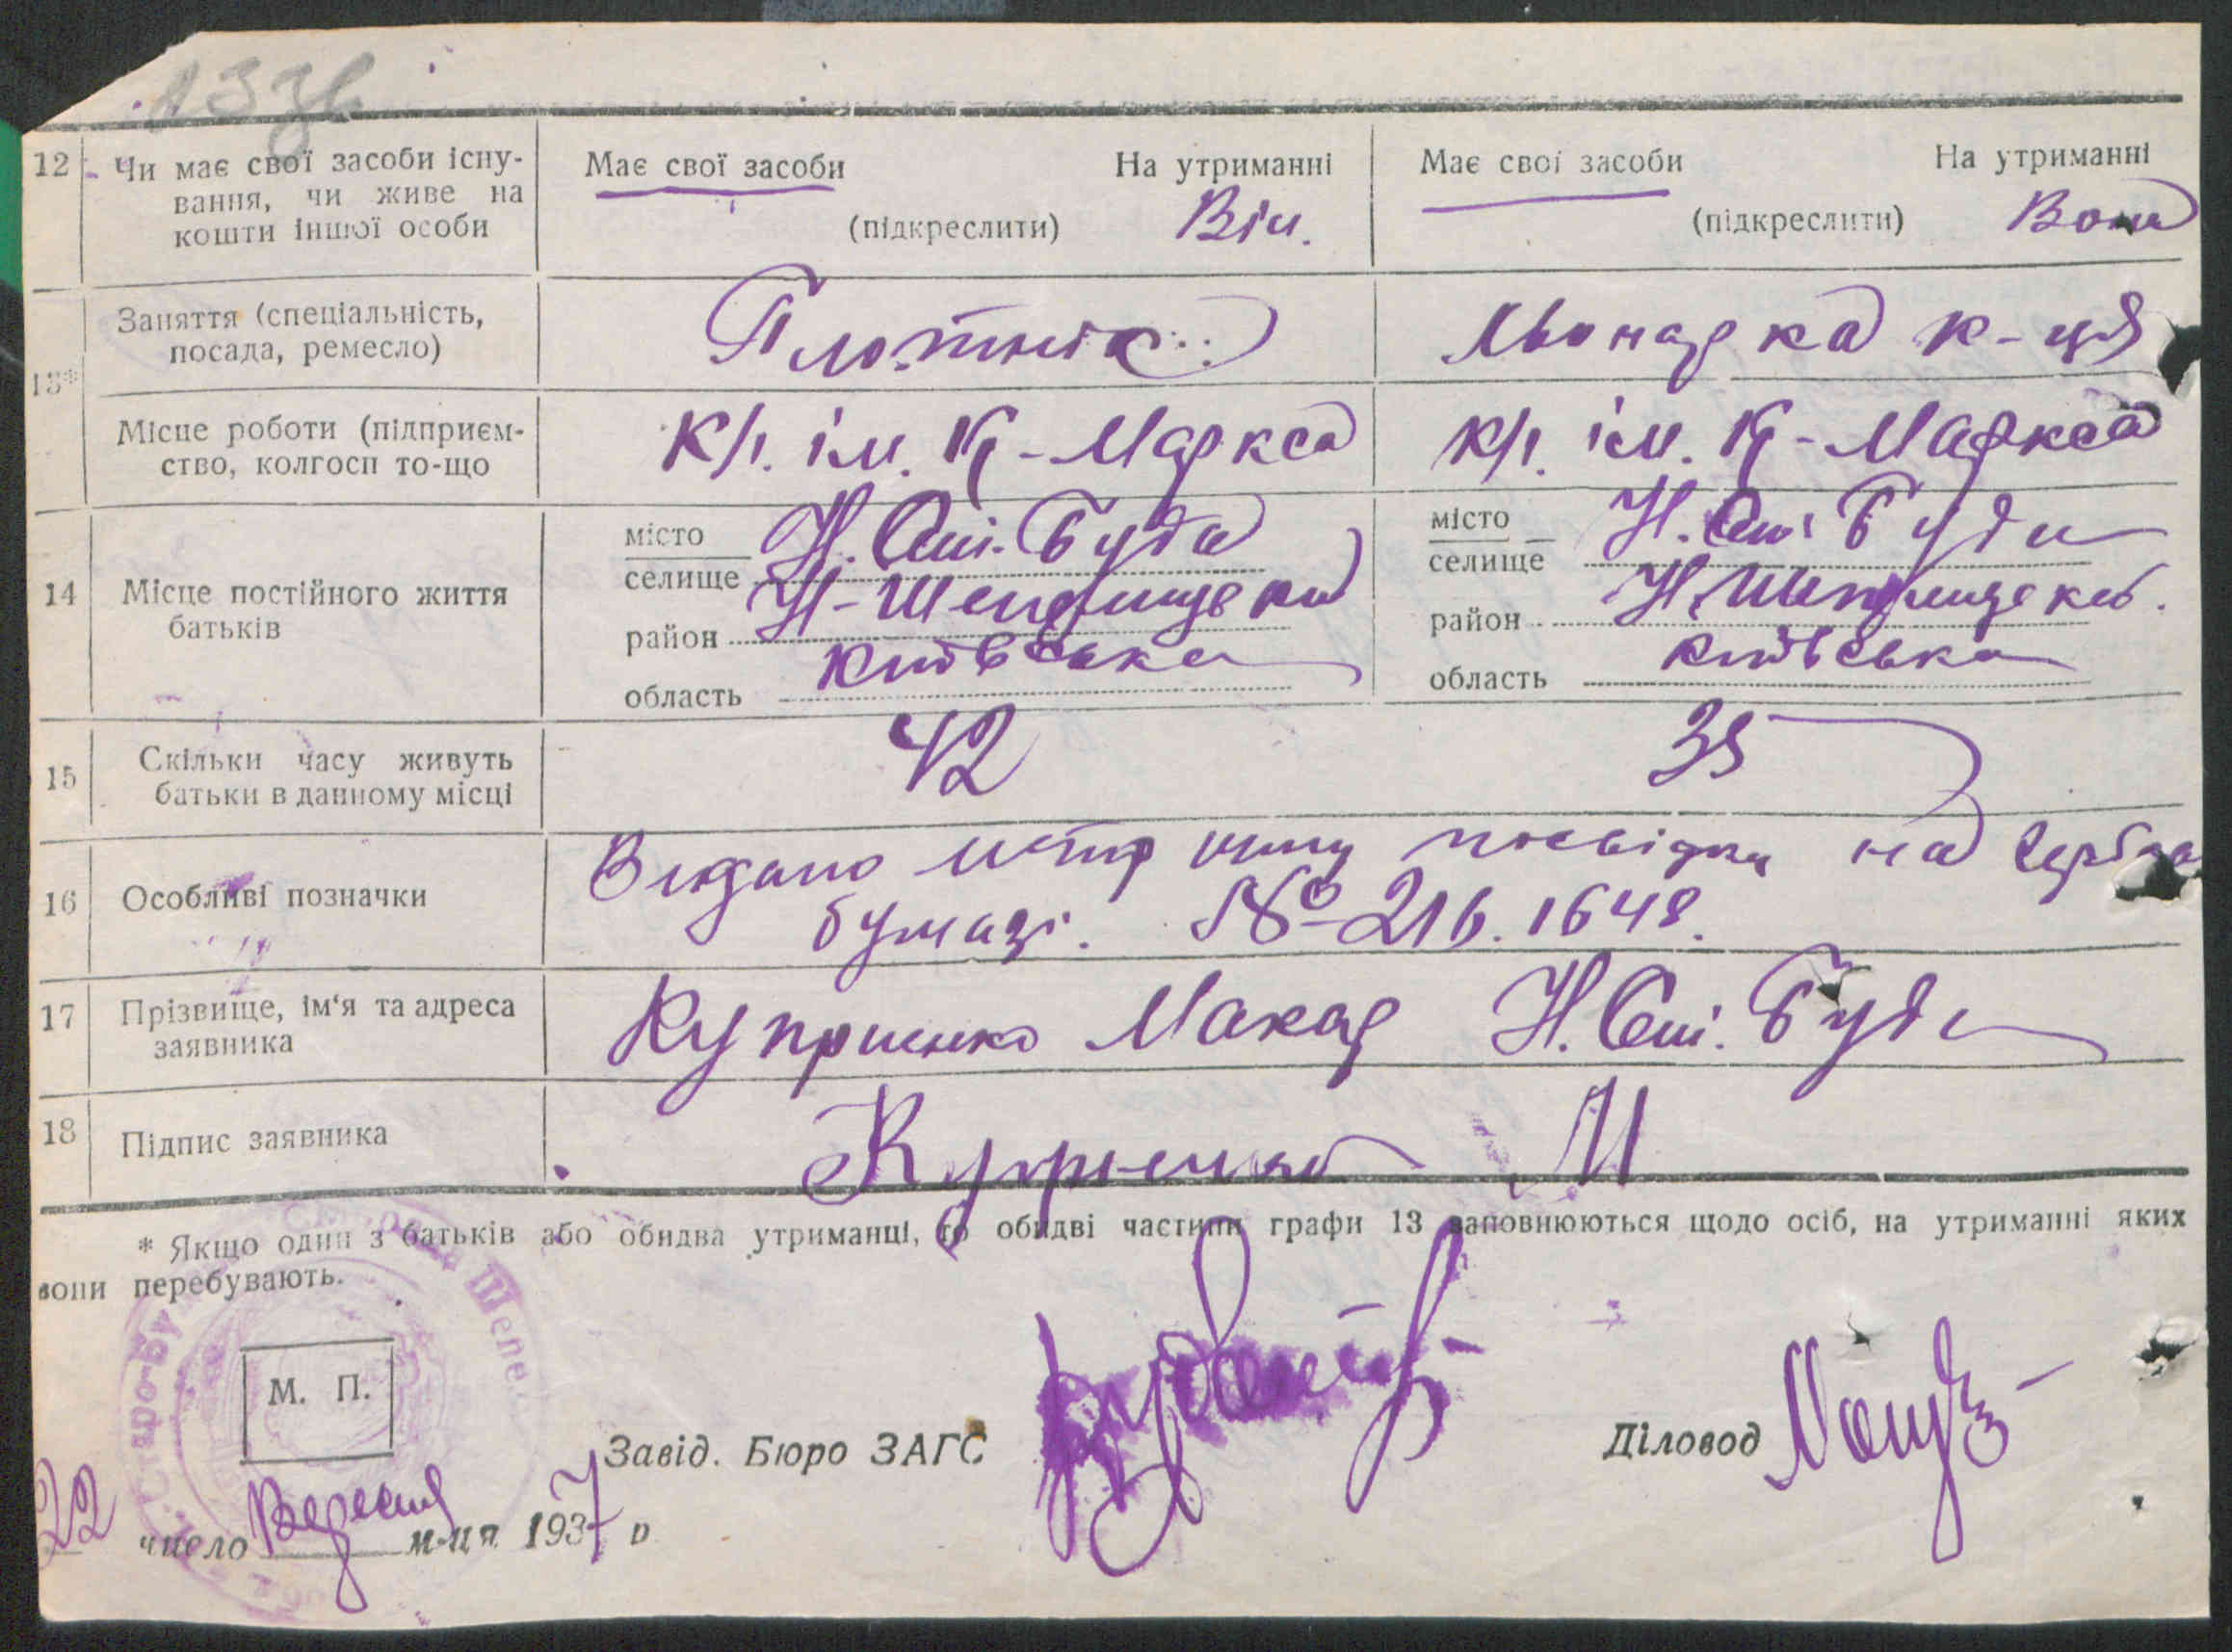 12 Чи має свої засоби існу-
вання, чи живе на
кошти іншої особи
Має свої засоби На утриманні
(підкреслити) Він.
Має свої засоби На утриманні
(підкреслити) Вона
13*
Заняття (спеціальність,
посада, ремесло)
Плотнік
к-ця
Місце роботи (підприєм-
ство, колгосп то-що
К/г. ім. К-Маркса
К/г. ім. К-Маркса
14 Місце постійного життя
батьків
місто
селище Н. Буда
район Н-Шепелицьки
область Київська
місто
селище Н. Буда
район Н.
область Київська
15 Скільки часу живуть
батьки в данному місці
42
35
16 Особливі позначки
Видано посвідку на
бумазі. № 216.1648.
17 Прізвище, ім'я та адреса
заявника
Куприенко Макар Н. Буда
18 Підпис заявника
М
* Якщо один з батьків або обидва утриманці, то обидві частини графи 13 заповнюються щодо осіб, на утриманні яких
вони перебувають.
М. П.
Завід. Бюро ЗАГС
Діловод
22 число Вересня м-ця 1937 р